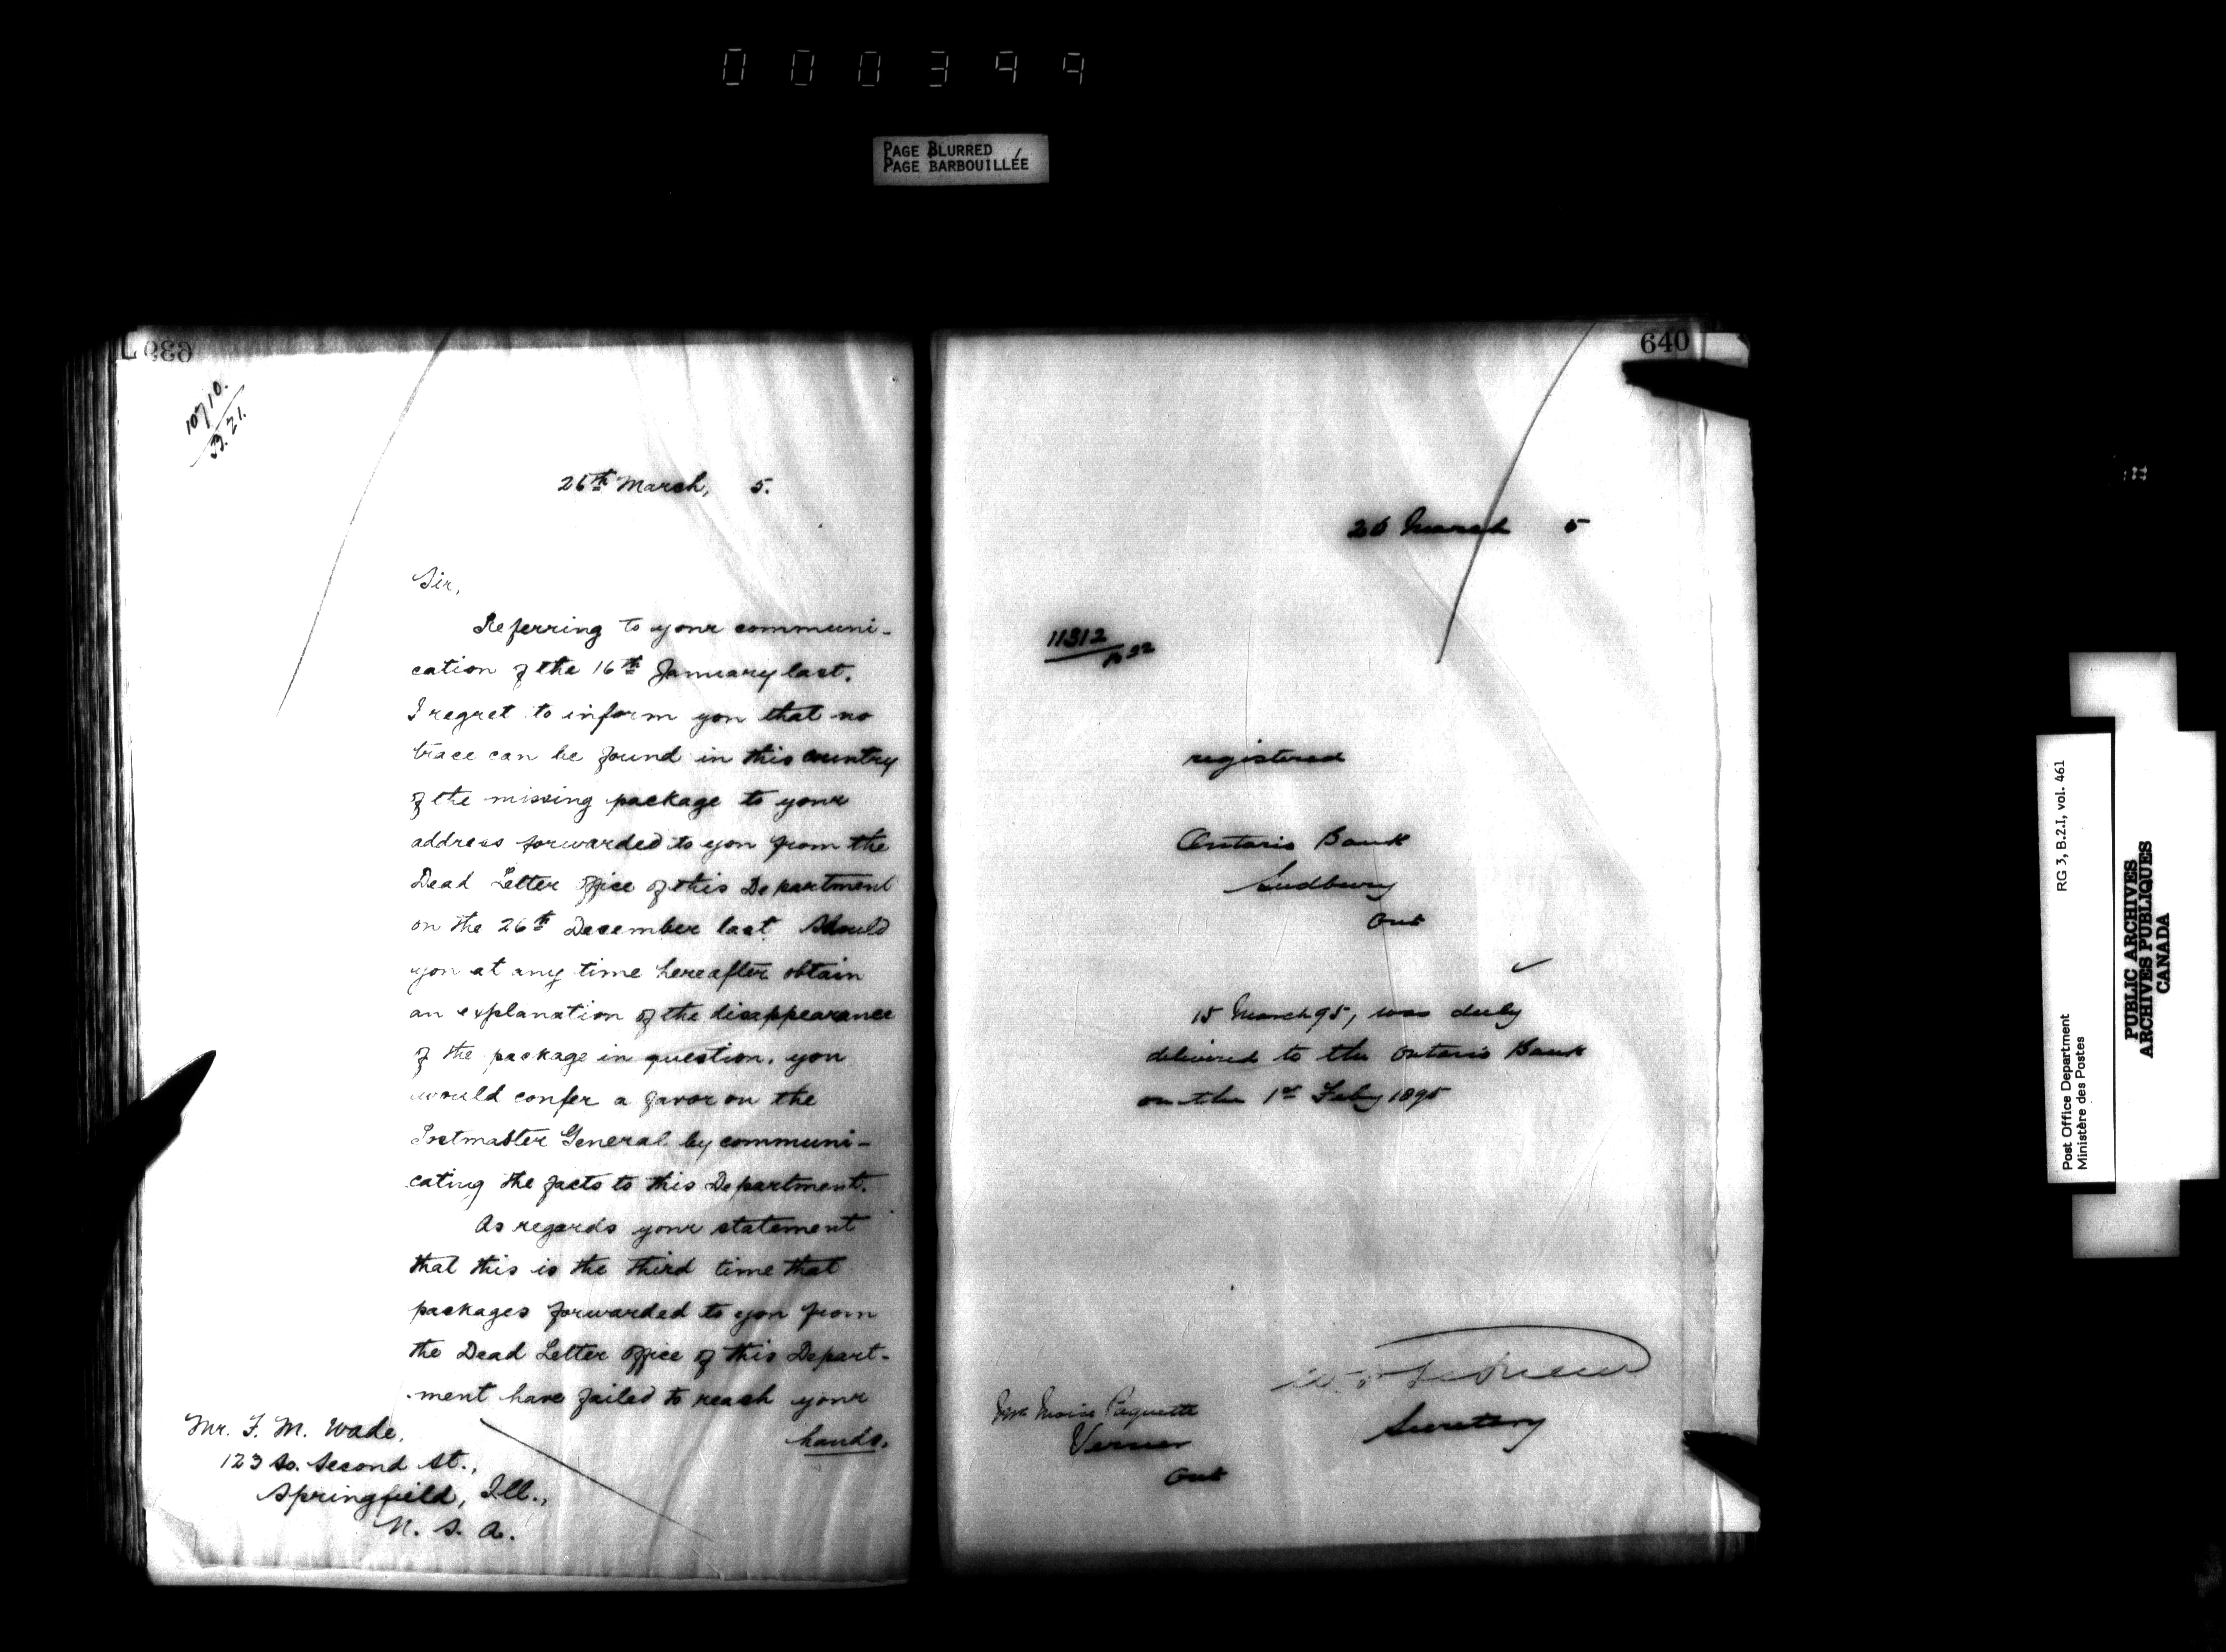 000399
PAGE BLURRED
PAGE BARBOUILLÉE
639
10710.
B. 21.
26th March, 5.
Sir,
Referring to your communi-
cation of the 16th January last.
I regret to inform you that no
trace can be found in this country
of the missing package to your
address forwarded to you from the
Dead Letter Office of this Department
on the 26th December last. Should
you at any time hereafter obtain
an explanation of the disappearance
of the package in question, you
would confer a favor on the
Postmaster General by communi-
cating the facts to this Department.
As regards your statement
that this is the third time that
packages forwarded to you from
the Dead Letter Office of this Depart-
ment have failed to reach your
hands.
Mr. F. M. Wade,
123 So. Second St.,
Springfield, Ill.,
U. S. A.
640
26 March 5
11312
registered
Ontario Bank
Sudbury
Ont
15 March 95, was duly
delivered to the Ontario Bank
on the 1st Feby 1895
Secretary
Mr Moise Paquette
Verner
Ont
Post Office Department
Ministère des Postes
RG 3, B.2.I, vol. 461
PUBLIC ARCHIVES
ARCHIVES PUBLIQUES
CANADA